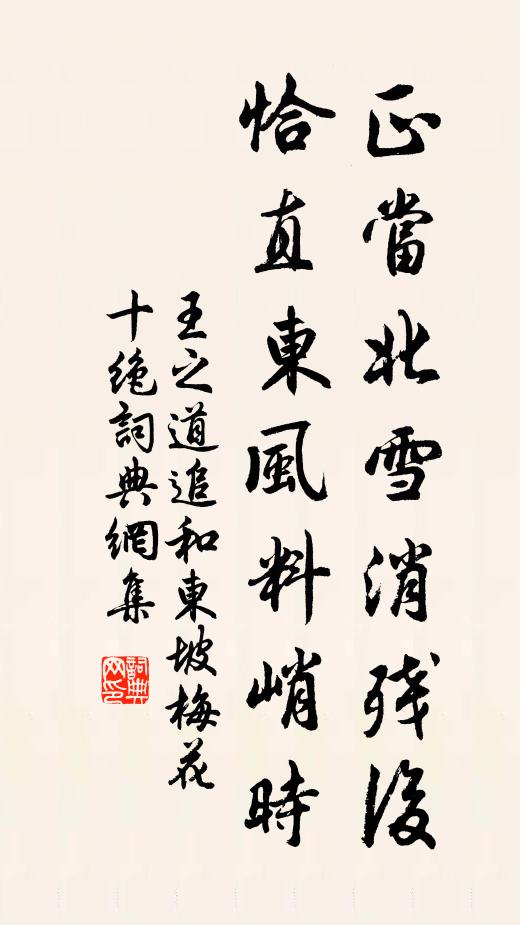 正當北雪消残後
恰直東風料峭時
王之道追和東坡梅花
十绝詞典網集
詞典網印